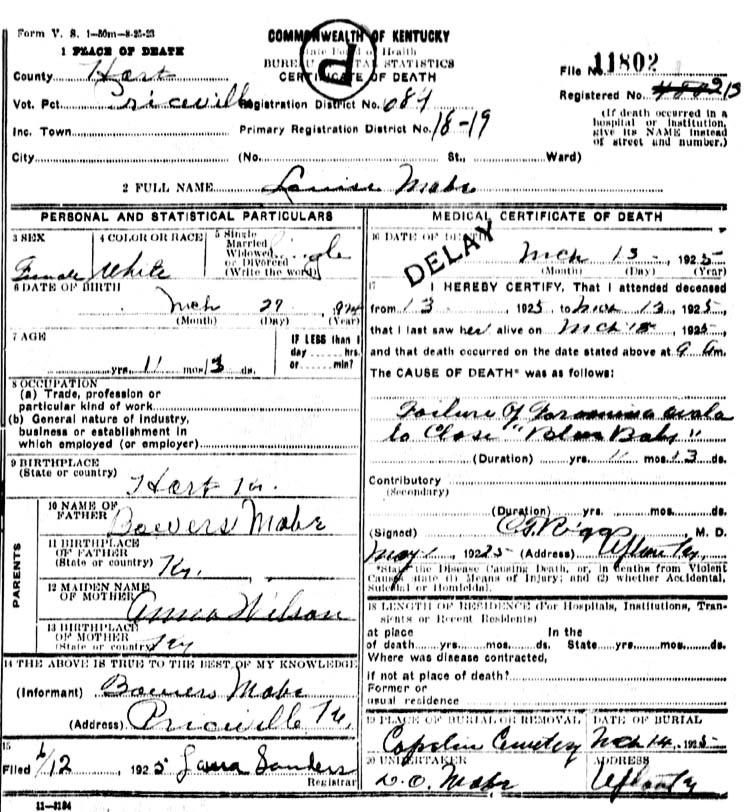 Form V. S. 1-50m-8-25-23
COMMONWEALTH OF KENTUCKY
State Board of Health
BUREAU VITAL STATISTICS
CERTIFICATE OF DEATH
1 PLACE OF DEATH
County Hart
File No. 11802
Vot. Pct. Priceville Registration District No. 684
Registered No.
Inc. Town Primary Registration District No. 18-19
(If death occurred in a hospital or institution, give its NAME instead of street and number.)
City (No. St., Ward)
2 FULL NAME Louise Mabe
PERSONAL AND STATISTICAL PARTICULARS
3 SEX
Female
4 COLOR OR RACE
White
5 Single
Married
Widowed
or Divorced
(Write the word)
Single
6 DATE OF BIRTH
Mch 27 924
(Month) (Day) (Year)
7 AGE
yrs. 11 mos 13 ds.
IF LESS than 1
day hrs.
or min?
8 OCCUPATION
(a) Trade, profession or
particular kind of work
(b) General nature of industry,
business or establishment in
which employed (or employer)
9 BIRTHPLACE
(State or country)
Hart Ky.
PARENTS
10 NAME OF
FATHER
Bowers Mabe
11 BIRTHPLACE
OF FATHER
(State or country)
Ky.
12 MAIDEN NAME
OF MOTHER
Anna Wilson
13 BIRTHPLACE
OF MOTHER
(State or country)
Ky
14 THE ABOVE IS TRUE TO THE BEST OF MY KNOWLEDGE
(Informant) Bowers Mabe
(Address) Priceville Ky.
15
Filed 6/12 1925 Laura Sanders
Registrar
11-3184
MEDICAL CERTIFICATE OF DEATH
DELAY
16 DATE OF DEATH
Mch 13 1925
(Month) (Day) (Year)
17 I HEREBY CERTIFY, That I attended deceased
from 13 1925, to Mch 13, 1925
that I last saw her alive on Mch 13 1925
and that death occurred on the date stated above at 9 am.
The CAUSE OF DEATH* was as follows:
Failure of Foramina ovala
to Close "Blue Baby"
(Duration) yrs. 11 mos. 13 ds.
Contributory
(Secondary)
(Duration) yrs. mos. ds.
(Signed) M. D.
May 1 1925 (Address) Upton Ky.
*State the Disease Causing Death, or, in deaths from Violent
Causes state (1) Means of Injury; and (2) whether Accidental,
Suicidal or Homicidal.
18 LENGTH OF RESIDENCE (For Hospitals, Institutions, Tran-
sients or Recent Residents)
at place In the
of death yrs. mos. ds. State yrs. mos. ds.
Where was disease contracted,
if not at place of death?
Former or
usual residence
19 PLACE OF BURIAL OR REMOVAL DATE OF BURIAL
Copelin Cemetery Mch 14, 1925
20 UNDERTAKER ADDRESS
D.O. Mabe Upton Ky